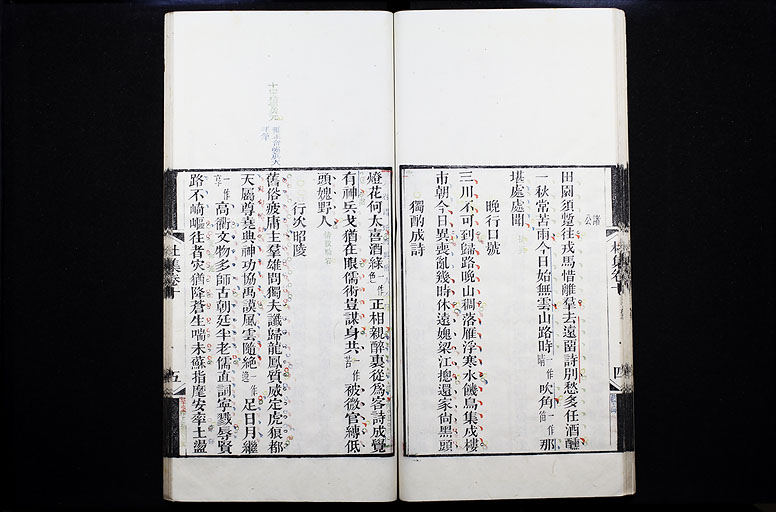 田園須蹔往戎馬惜離羣去遠留詩別愁多任酒醺
一秋常苦雨今日始無雲山路時一作晴吹角一作那
堪處處聞
晚行口號
三川不可到歸路晚山稠落雁浮寒水饑烏集戍樓
市朝今日異喪亂幾時休遠媿梁江摠還家尚黑頭
獨酌成詩
杜集卷十
四
燈花何太喜酒綠一作色正相親醉裏從爲客詩成覺
有神兵戈猶在眼儒術豈謀身共一作苦被微官縛低
頭媿野人
行次昭陵
舊俗疲庸主羣雄問獨夫讖歸龍鳳質威定虎狼都
天屬尊堯典神功協禹謨風雲隨絶一作逸足日月繼
一作高衢文物多師古朝廷半老儒直詞寧戮辱賢
路不崎嶇往者灾猶降蒼生喘未蘇指麾安率土盪
杜集卷十
五